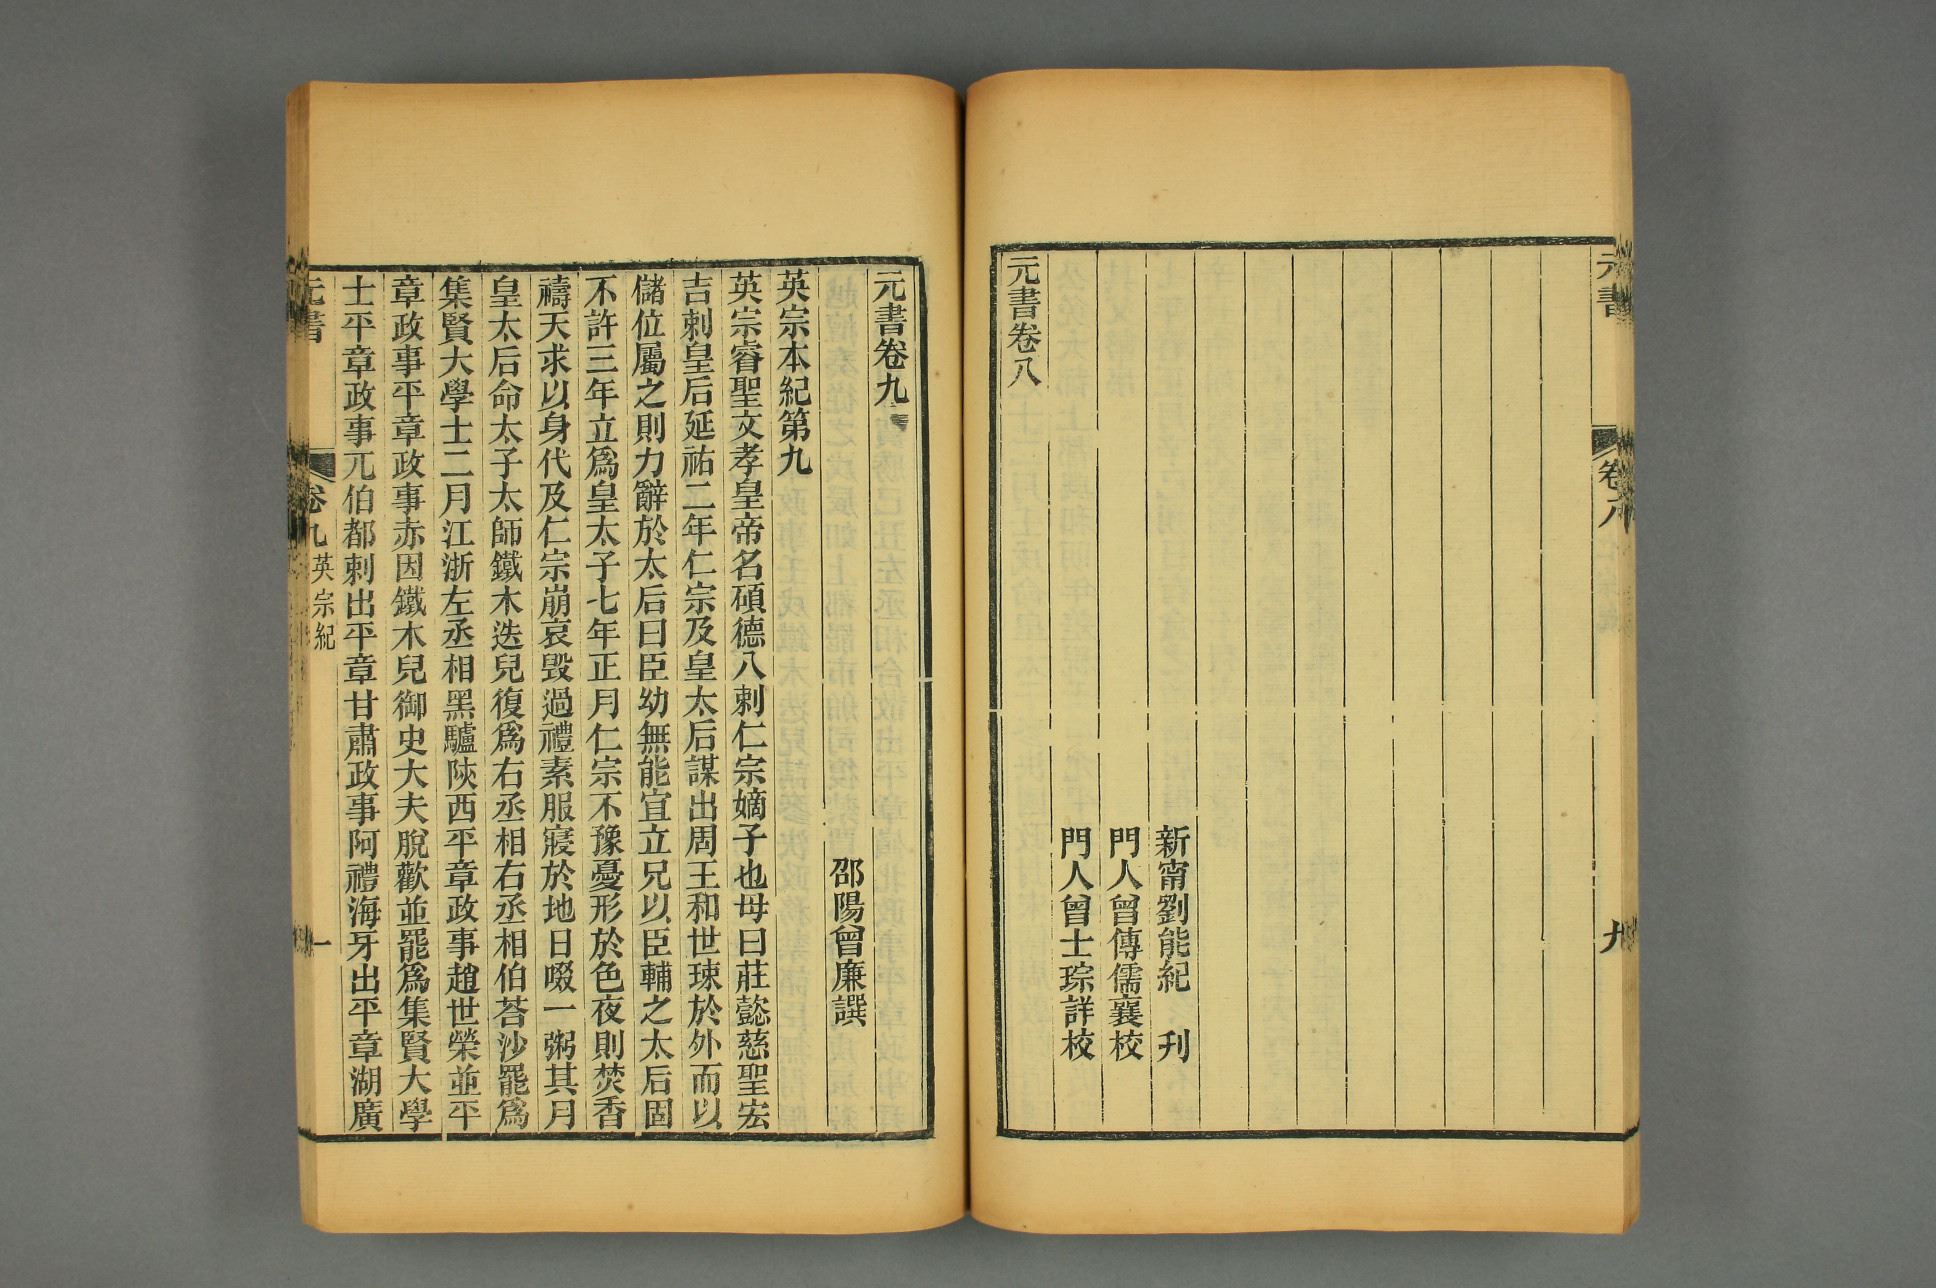 元書
卷八
九
新甯劉能紀　刋
門人曾傳儒襄校
門人曾士琮詳校
元書卷八
元書卷九
邵陽曾廉譔
英宗本紀第九
英宗睿聖文孝皇帝名碩德八剌仁宗嫡子也母曰莊懿慈聖宏
吉剌皇后延祐二年仁宗及皇太后謀出周王和世㻋於外而以
儲位屬之則力辭於太后曰臣幼無能宜立兄以臣輔之太后固
不許三年立爲皇太子七年正月仁宗不豫憂形於色夜則焚香
禱天求以身代及仁宗崩哀毀過禮素服寢於地日啜一粥其月
皇太后命太子太師鐵木迭兒復爲右丞相右丞相伯荅沙罷爲
集賢大學士二月江浙左丞相黑驢陜西平章政事趙世榮並平
章政事平章政事赤因鐵木兒御史大夫脫歡並罷爲集賢大學
士平章政事兀伯都剌出平章甘肅政事阿禮海牙出平章湖廣
元書
卷九
英宗紀
一